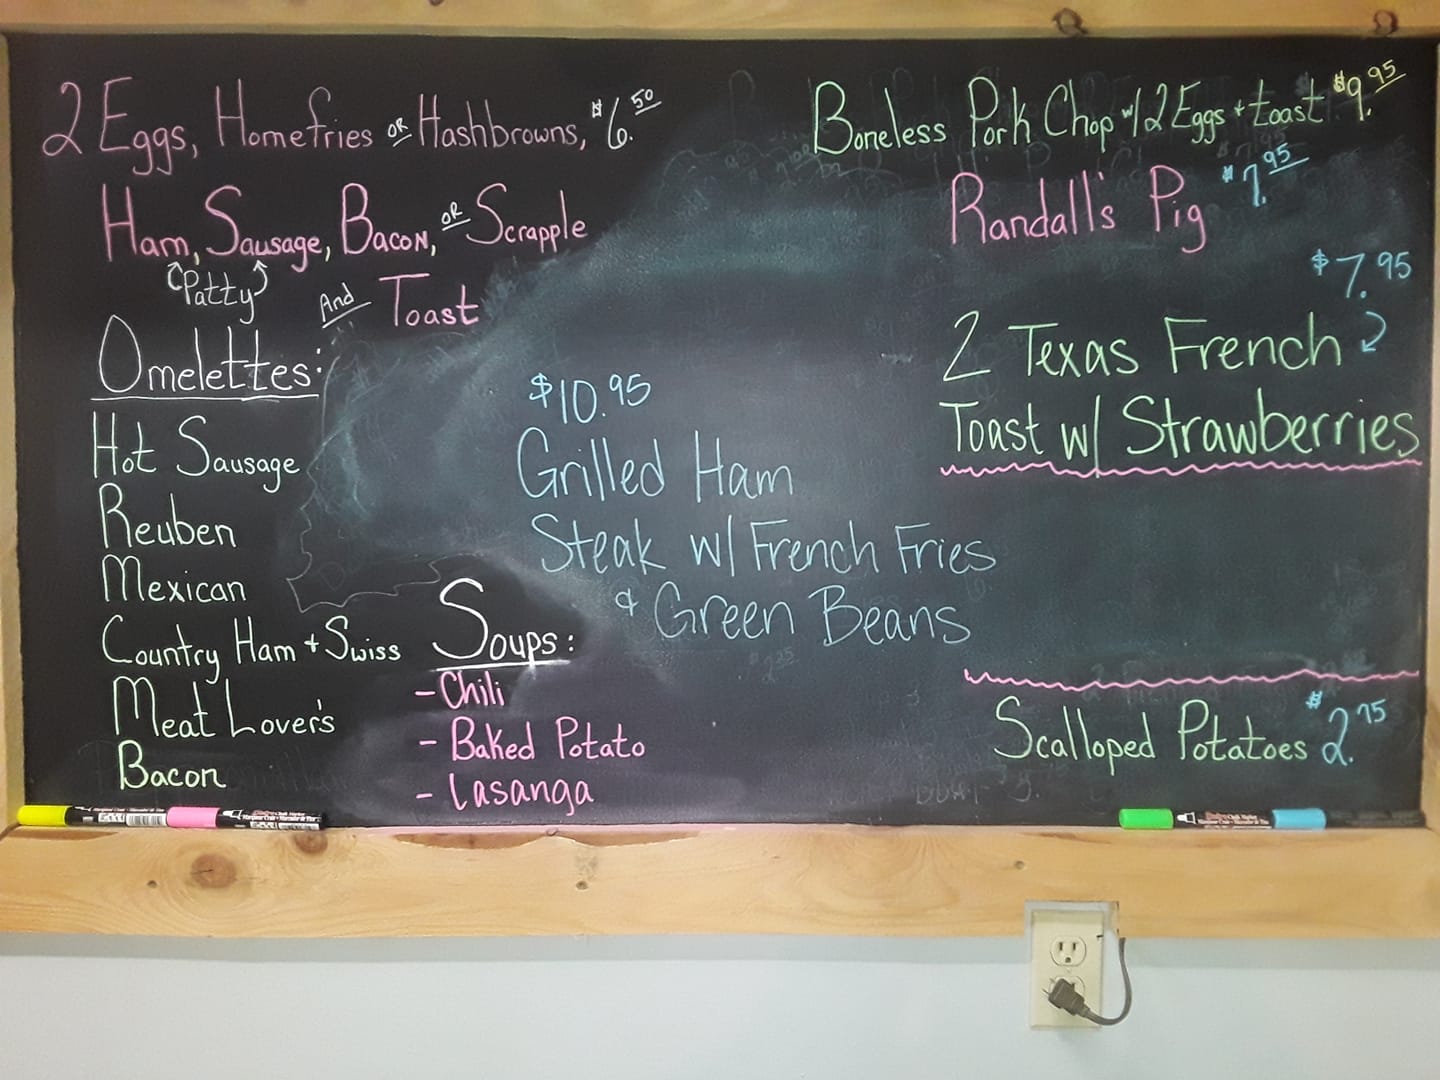 2 Eggs, Homefries or Hashbrowns, $6.50
Ham, Sausage, Bacon, or Scrapple
Patty
And Toast
Omelettes:
Hot Sausage
Reuben
Mexican
Country Ham + Swiss
Meat Lover's
Bacon
$10.95
Grilled Ham
Steak w/ French Fries
& Green Beans
Soups:
- Chili
- Baked Potato
- Lasanga
Boneless Pork Chop w/ 2 Eggs + toast $9.95
Randall's Pig $7.95
$7.95
2 Texas French
Toast w/ Strawberries
Scalloped Potatoes $2.75